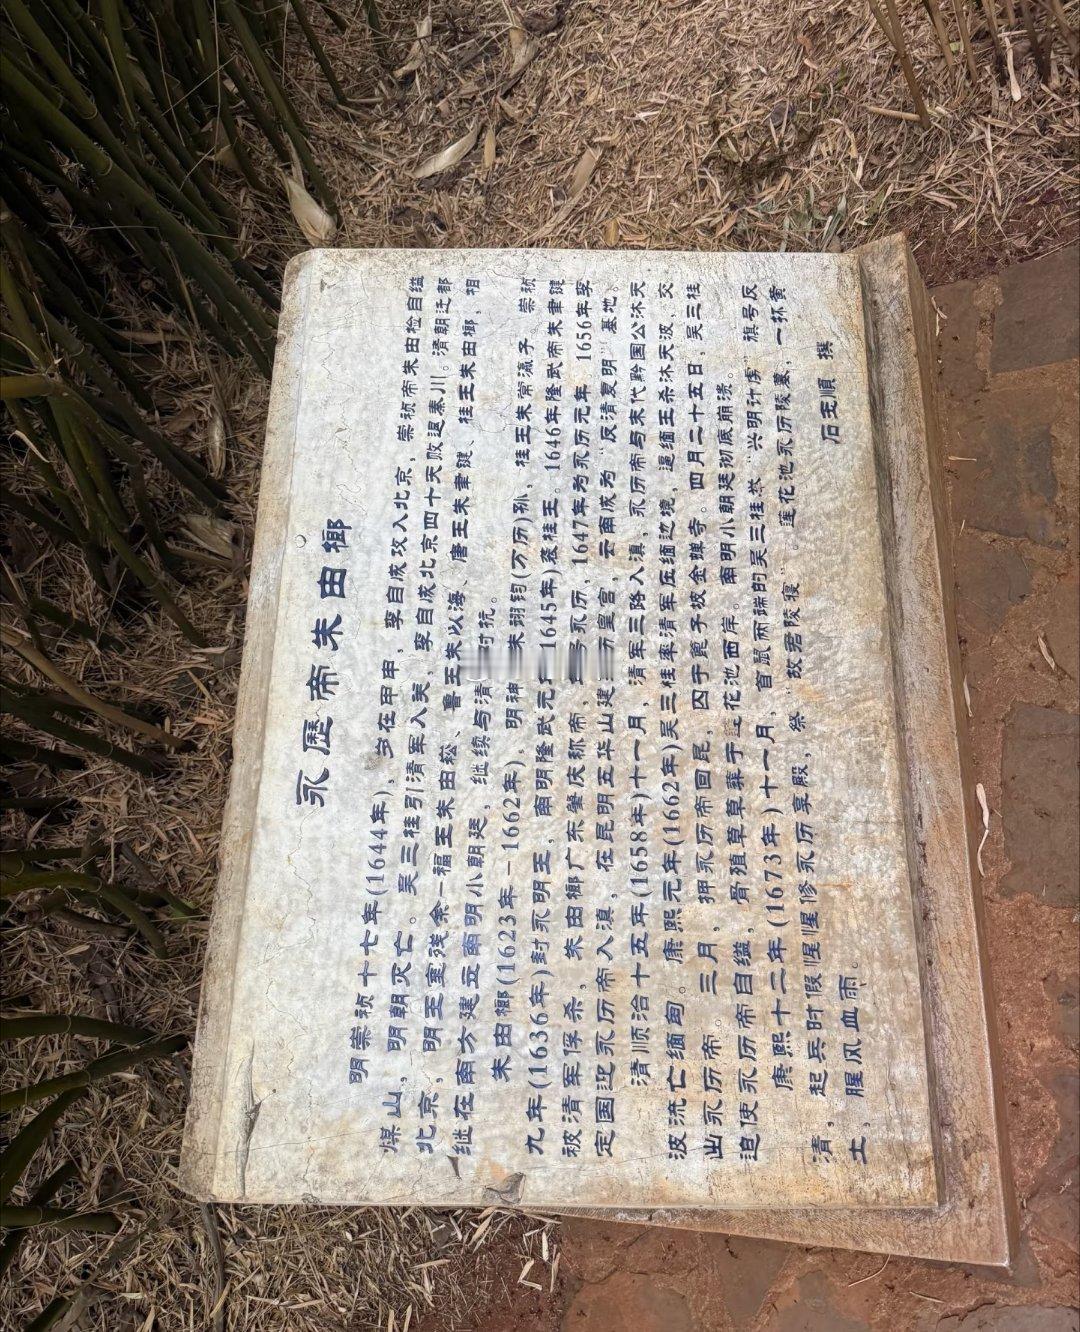 永歷帝朱由榔
明崇祯十七年(1644年)，岁在甲申，李自成攻入北京，崇祯帝朱由检自缢
煤山，明朝灭亡。吴三桂引清军入关，李自成北京四十天败退秦川。清朝迁都
北京，明王室残余一福王朱由崧、鲁王朱以海、唐王朱聿键、桂王朱由榔，相
继在南方建立南明小朝廷，继续与清 对抗。
朱由榔(1623年-1662年)，明神 朱翊钧(万历)孙，桂王朱常瀛子。崇祯
九年(1636年)封永明王，南明隆武元 1645年)袭桂王。1646年隆武帝朱聿键
被清军俘杀，朱由榔广东肇庆称帝， 号永历，1647年为永历元年。1656年李
定国迎永历帝入滇，在昆明五华山建 历皇宫，云南成为“反清复明”基地。
清顺治十五年(1658年)十一月，清军三路入滇，永历帝与末代黔国公沐天
波流亡缅甸。康熙元年(1662年)吴三桂率清军压缅边境，逼缅王杀沐天波，交
出永历帝。三月，押永历帝回昆，囚于篦子坡金蝉寺。四月二十五日，吴三桂
迫使永历帝自缢，骨殖草草葬于莲花池西岸。南明小朝廷彻底崩溃。
康熙十二年(1673年)十一月，首鼠两端的吴三桂举“兴明讨虏”旗号反
清，起兵时假惺惺修永历享殿，祭“故君陵寝”。莲花池永历陵墓，一抔黄
土，腥风血雨。
石玉顺 撰